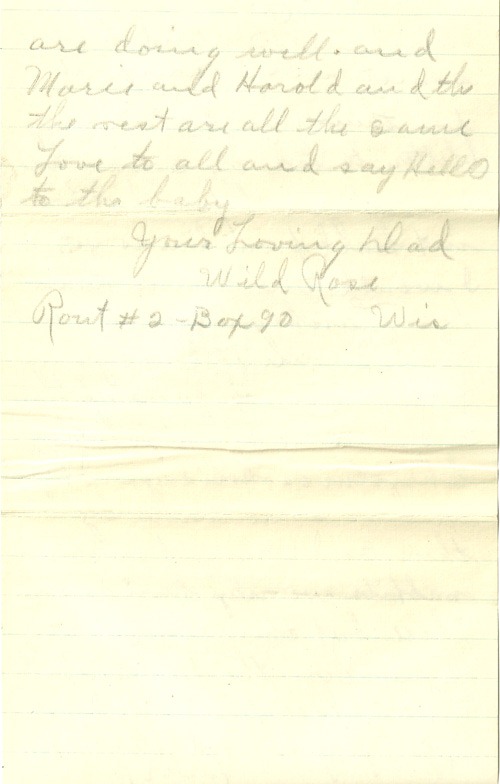 are doing well. and
Marie and Harold and the
the rest are all the same
Love to all and say Hello
to the baby
Your Loving Dad
Wild Rose
Rout # 2 - Box 90 Wis